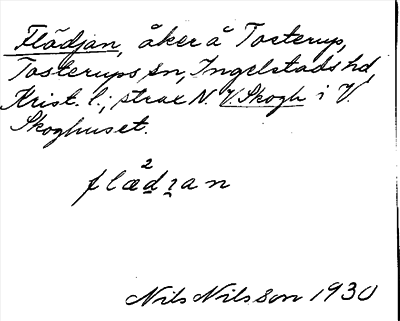 Flädjan, åker å Tosterup,
Tosterups sn, Ingelstads hd,
Krist. l.; strax N. V. Skogh i V.
Skoghuset.
2
flædɿan
Nils Nilsson 1930